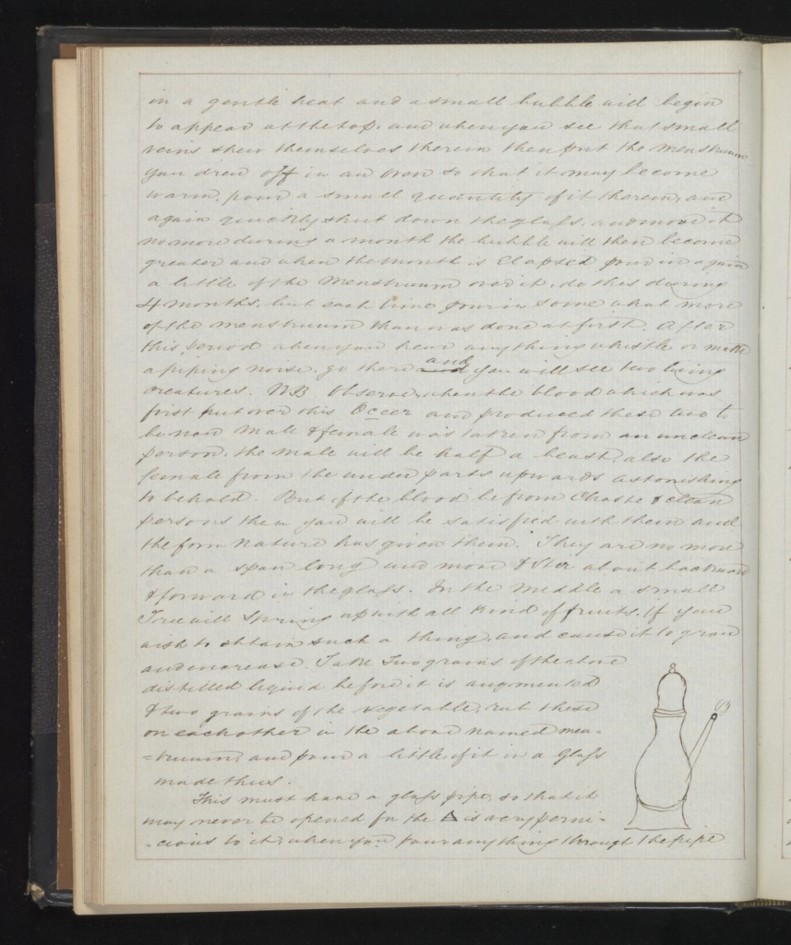 in a gentle heat and a small bubble will begin
to appear at the top, and when you see that small
veins shew themselves therein then put the menstruum
you drew off in an oven so that it may become
warm, pour a small quantity of it therein, and
again quickly shut down the glass, and move it
no more during a month the bubble will then become
greater and when the month is Elapsed pour in again
a little of the Menstruum over it, do this during
4 months, but each time pour in some what more
of the menstruum than was done at first. After
this period when you hear any thing whistle or make
a piping noise, go there and you will see two living
creatures. NB. Observe, when the blood which was
first put over this and produced these two to
be now Male & female was taken from an unclean
person, the male will be half a beast, also the
female from the under parts upwards astonishing
to behold. But if the blood be from Chaste & clean
persons then you will be satisfied with them and
the form Nature has given them. They are no more
than a span long and move & stir about backward
& forward in the glass. In the Middle a small
Tree will Spring up with all kind of fruits. If you
wish to obtain such a thing, and cause it to grow
and increase, Take Two grains of the above
distilled liquid before it is augmented
& two grains of the vegetable, rub these
on each other in the above named men-
=struum, and pour a little of it in a Glass
made thus.
This must have a glass pipe, so that it
may never be opened for the 🜁 is very perni-
-cious to it, when you pour any thing through the pipe